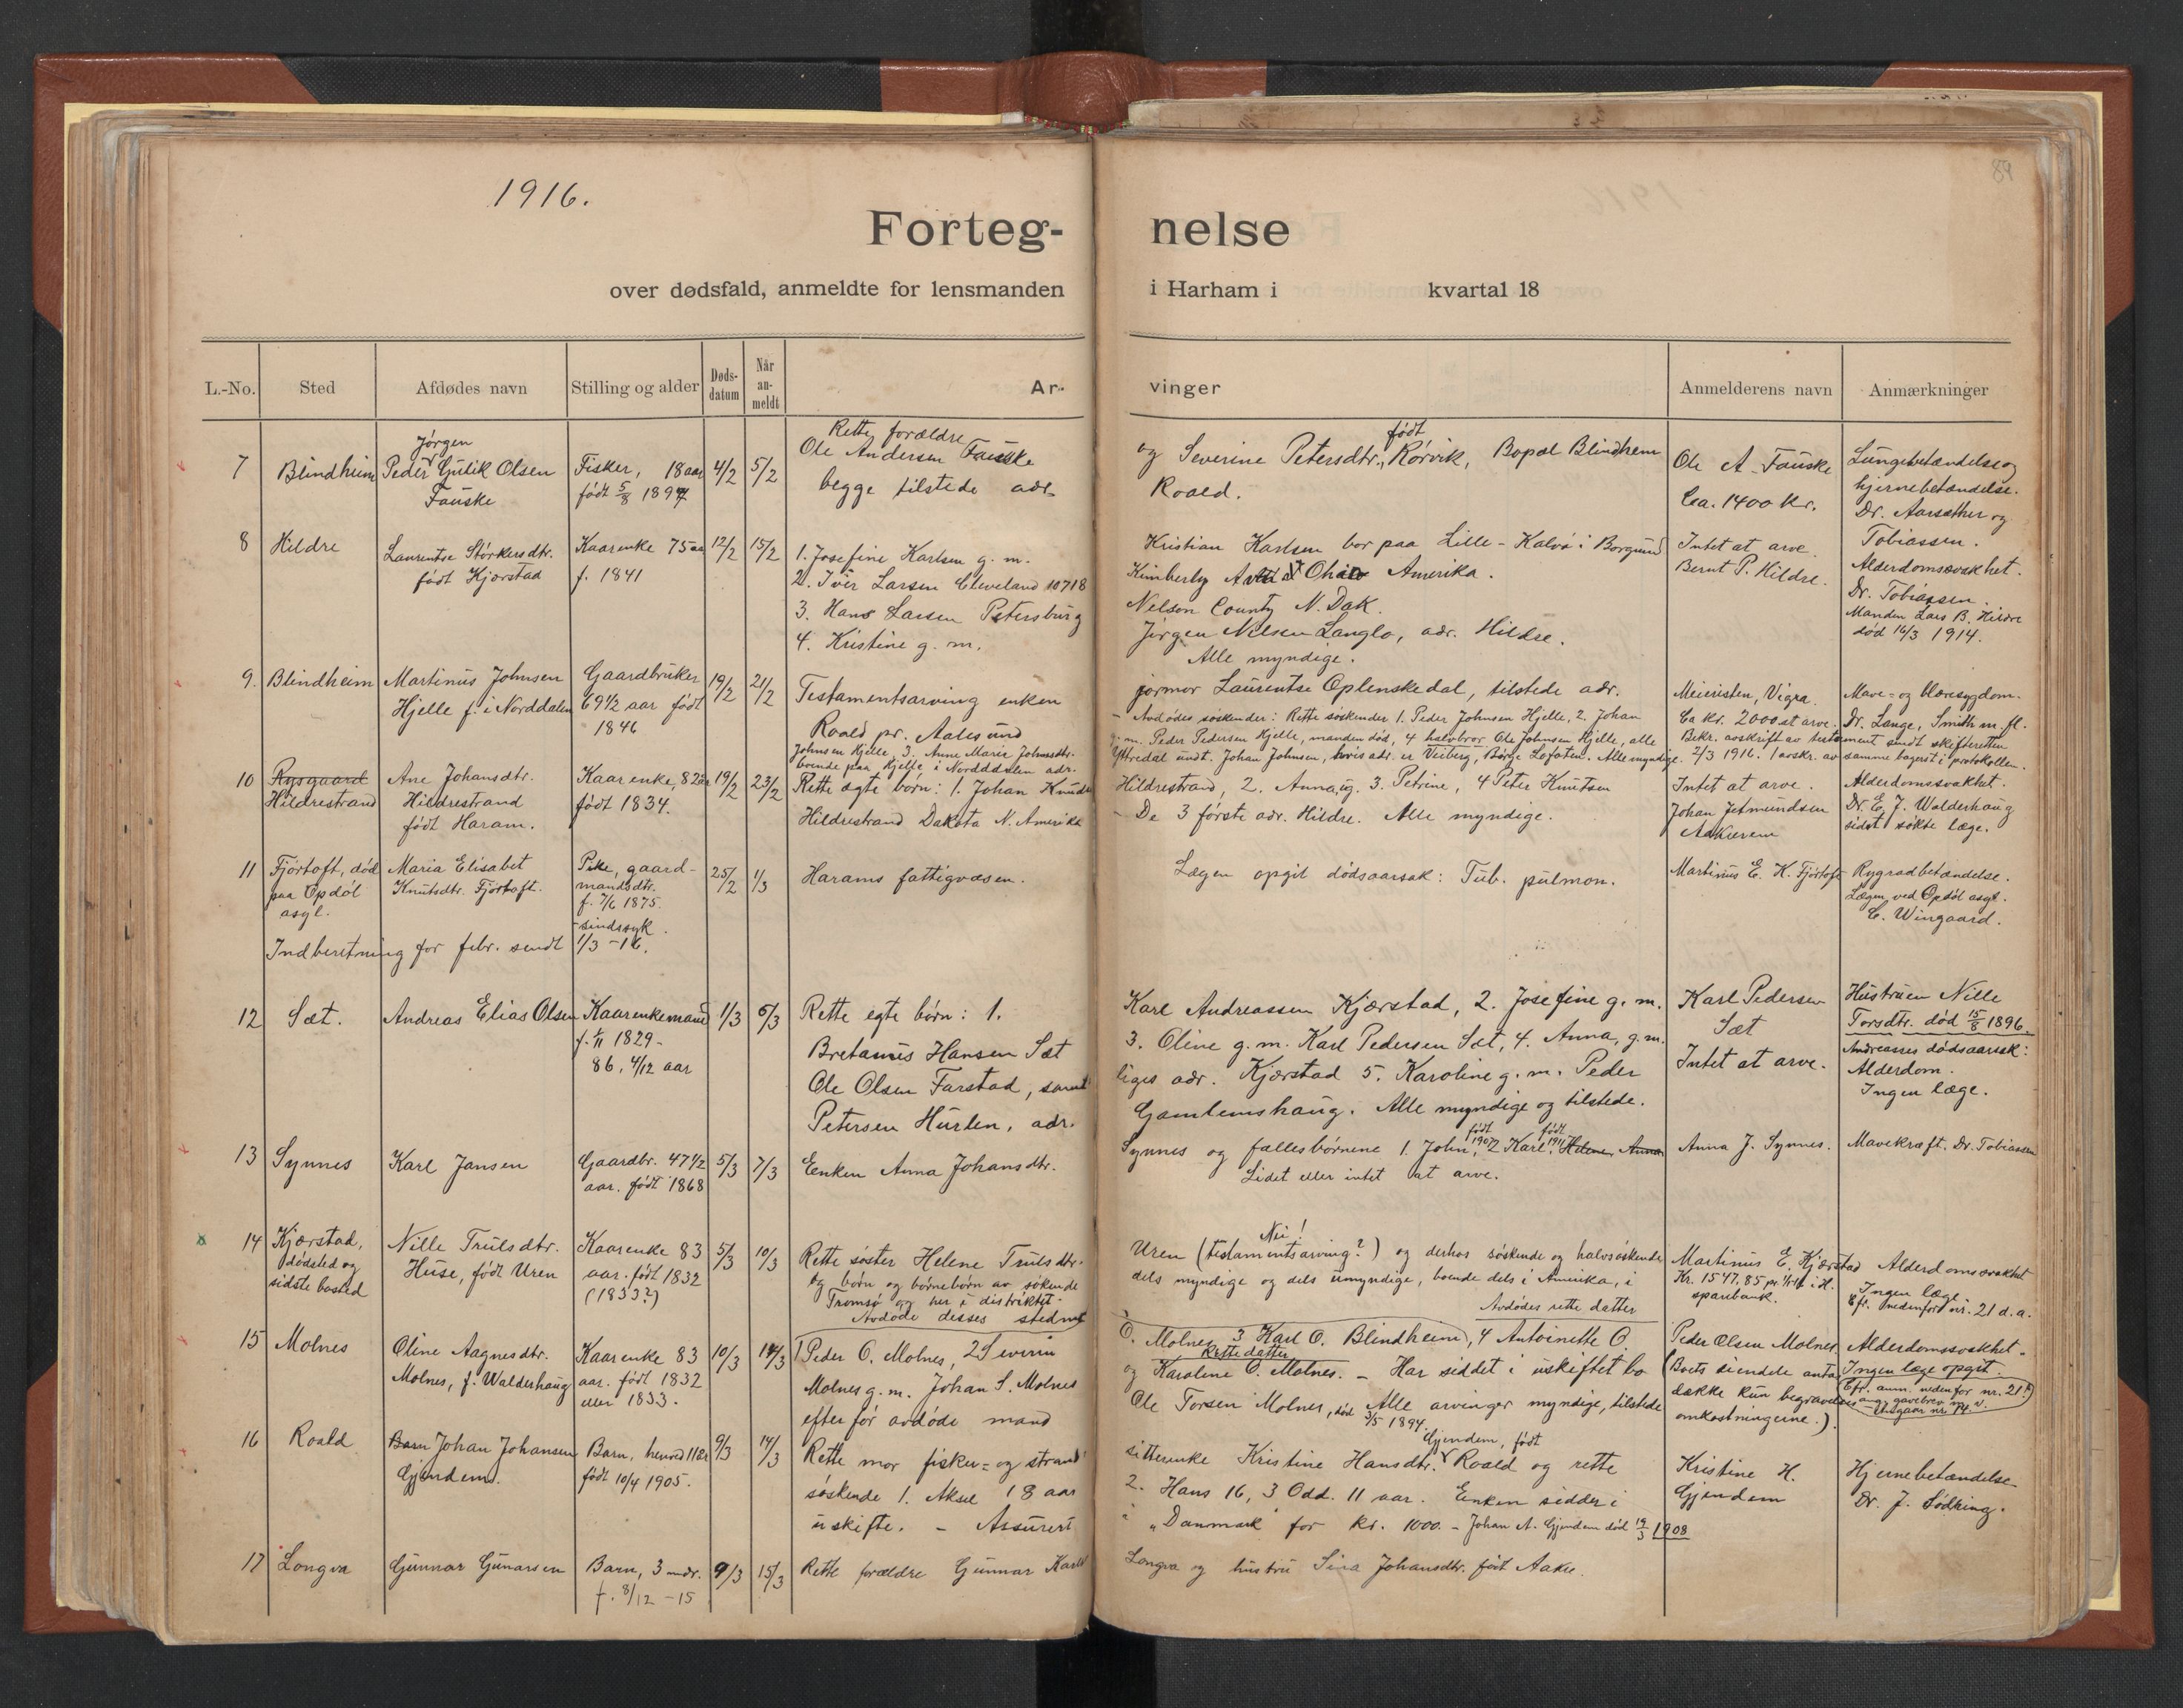 1916.
84
Forteg-
nelse
over dødsfald, anmeldte for lensmanden
i Harham i kvartal 18
L.-No.
Sted
Afdødes navn
Stilling og alder
Døds-
datum
Når
an-
meldt
Ar-
vinger
Anmelderens navn
Anmærkninger
7
Blindheim
Jørgen
Peder Gutik Olsen
Fauske
Fisker, 18 aar
født 5/8 1897
4/2
5/2
Rette forældre
Ole Andersen Fauske
begge tilstede adr.
født
og Severine Petersdtr., Rørvik, Bopæl Blindheim
Roald.
Ole A. Fauske
Ca. 1400 kr.
Lungebetændelse og
hjernebetændelse.
Dr. Aarsæther og
Tobiassen.
8
Hildre
Laurentse Størkersdtr.
født Kjørstad
Kaarenke 75 aar
f. 1841
12/2
15/2
1. Josefine Karlsen g. m.
2. Iver Larsen Cleveland 10718
3. Hans Larsen Petersburg
4. Kristine g. m.
Kristian Karlsen bor paa Lille-Kalvø i Borgund
Kimberly Ohio Amerika.
Nelson County N. Dak.
Jørgen Nilsen Langlo, adr. Hildre.
Alle myndige.
Intet at arve.
Bernt P. Hildre.
Alderdomssvakhet.
Dr. Tobiassen.
Manden Lars B. Hildre
død 16/3 1914.
9.
Blindheim
Martinus Johnsen
Hjelle f. i Norddalen
Gaardbruker
69 1/2 aar født
1846
19/2
21/2
Testamentsarving enken
Roald pr. Aalesund
Johnsen Hjelle, 3. Anne Marie Johnsdtr.
boende paa Hjelle i Norddalen adr.
jormor Laurentse Oplenskedal, tilstede adr.
- Avdødes søskender: Rette søskender 1. Peder Johnsen Hjelle, 2. Johan
g. m. Peder Pedersen Hjelle, manden død, 4 halvbror Ole Johnsen Hjelle, alle
Yttredal undt. Johan Johnsen, hvis adr. er Veiberg, Børge Lofoten. Alle myndige.
Meieristen, Vigra.
Ca kr. 2000 at arve.
Bekr. avskrift av testament sendt skifteretten
2/3 1916. 1 avskr. av samme bagerst i protokollen.
Mave- og blæresygdom.
Dr. Lange, Smith m. fl.
10
Rysgaard
Hildrestrand
Ane Johansdtr.
Hildrestrand
født Haram.
Kaarenke, 82 aar
født 1834.
19/2
23/2
Rette ægte børn: 1. Johan Knuds
Hildrestrand Dakota N. Amerika
Hildrestrand, 2. Anna, ug. 3. Petrine, 4 Peter Knutsen
- De 3 første adr. Hildre. Alle myndige.
Intet at arve.
Johan Jetmundsen
Aakierem
Alderdomssvakhet.
Dr. E. J. Walderhaug
sidst søkte læge.
11
Fjørtoft, død
paa Opdøl
asyl.
Maria Elisabet
Knutsdtr. Fjørtoft.
Pike, gaard-
mandsdtr.
f. 7/6 1875.
-sindssyk.
25/2
1/3
Harams fattigvæsen.
Lægen opgit dødsaarsak: Tub. pulmon.
Martinus E. K. Fjørtoft
Rygradbetændelse.
Lægen ved Opdøl asyl.
E. Wingaard.
Indberetning for febr. sendt 1/3 -16.
12
Sæt.
Andreas Elias Olsen
Kaarenkemand
f. 1/11 1829-
86, 4/12 aar
1/3
6/3
Rette egte børn: 1.
Bretanus Hansen Sæt
Ole Olsen Farstad, samt
Petersen Hurlen, adr.
Karl Andreassen Kjærstad, 2. Josefine g. m.
3. Oline g. m. Karl Pedersen Sæt, 4. Anna, g. m.
liges adr. Kjærstad 5. Karoline g. m. Peder
Gamlemshaug. Alle myndige og tilstede.
Karl Pedersen
Sæt
Intet at arve.
Hustruen Nille
Torsdtr. død 15/8 1896.
Andreases dødsaarsak:
Alderdom.
Ingen læge.
13
Synnes
Karl Jansen
Gaardbr. 47 1/2
aar. født 1868
5/3
7/3
Enken Anna Johansdtr.
født født
Synnes og fællesbørnene 1. John, 1907, 2 Karl, 1911, Helene, Anna
Lidet eller intet at arve.
Anna J. Synnes.
Mavekræft. Dr. Tobiassen
14
Kjærstad,
dødsted og
sidste bosted
Nille Trulsdtr.
Huse, født Uren
Kaarenke 83
aar. født 1832
(1833?)
5/3
10/3
Rette søster Helene Trulsdtr.
og børn og børnebørn av søkende
Tromsø og her i distriktet.
Nei!
Uren (testamentsarving?) og derhos søskende og halvsøskende
dels myndige og dels umyndige, boende dels i Amerika, i
Martinus E. Kjærstad
Kr. 1547,85 pr. 1/1 16 i H.
sparebank.
Alderdomssvakhet
Ingen læge.
Cfr. nedenfor nr. 21 d. a.
15
Molnes
Oline Aagnesdtr.
Molnes, f. Walderhaug
Kaarenke 83
aar. født 1832
eller 1833.
10/3
14/3
Avdøde desses stedmor
1 Peder O. Molnes, 2 Severin
Molnes g. m. Johan S. Molnes
efter før avdøde mand
Avdødes rette datter
O. Molnes 3 Karl O. Blindheim, 4 Antoinette O.
Rette datter
og Karoline O. Molnes. - Har siddet i uskiftet bo
Ole Torsen Molnes, død 3/5 1894. Alle arvinger myndige, tilstede
Peder Olsen Molnes.
(Boets eiendele antas
dække kun begravelses
omkostningerne.)
Alderdomssvakhet.
Ingen læge opgit.
Cfr. anm. nedenfor nr. 21!
ang. gavebrev m. v.
Utgaar nr. 14.
16
Roald
Barn Johan Johansen
Gjendem.
Barn, henved 11 aar
født 10/4 1905.
9/3
14/3
Rette mor fisker- og strand
søskende 1. Aksel 18 aar
uskifte. - Assurert
Gjendem, født
sitterenke Kristine Hansdtr. Roald og rette
2. Hans 16, 3 Odd. 11 aar. Enken sidder i
i "Danmark" for kr. 1000. - Johan A. Gjendem død 19/3 1908
Kristine H.
Gjendem
Hjernebetændelse
Dr. J. Sødring.
17
Longva
Gunnar Gunarsen
Barn, 3 mdr.
f. 8/12 -15
9/3
15/3
Rette forældre Gunnar Karls
Longva og hustru Sina Johansdtr. født Aakre.